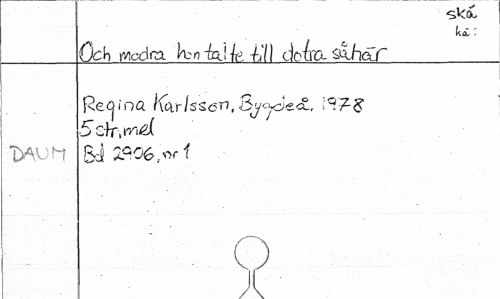 skå
hå:
Och modra hon talte till dotra såhär
Regina Karlsson, Bygdeå, 1978
5 str, mel
DAUM Bd 2906, nr 1